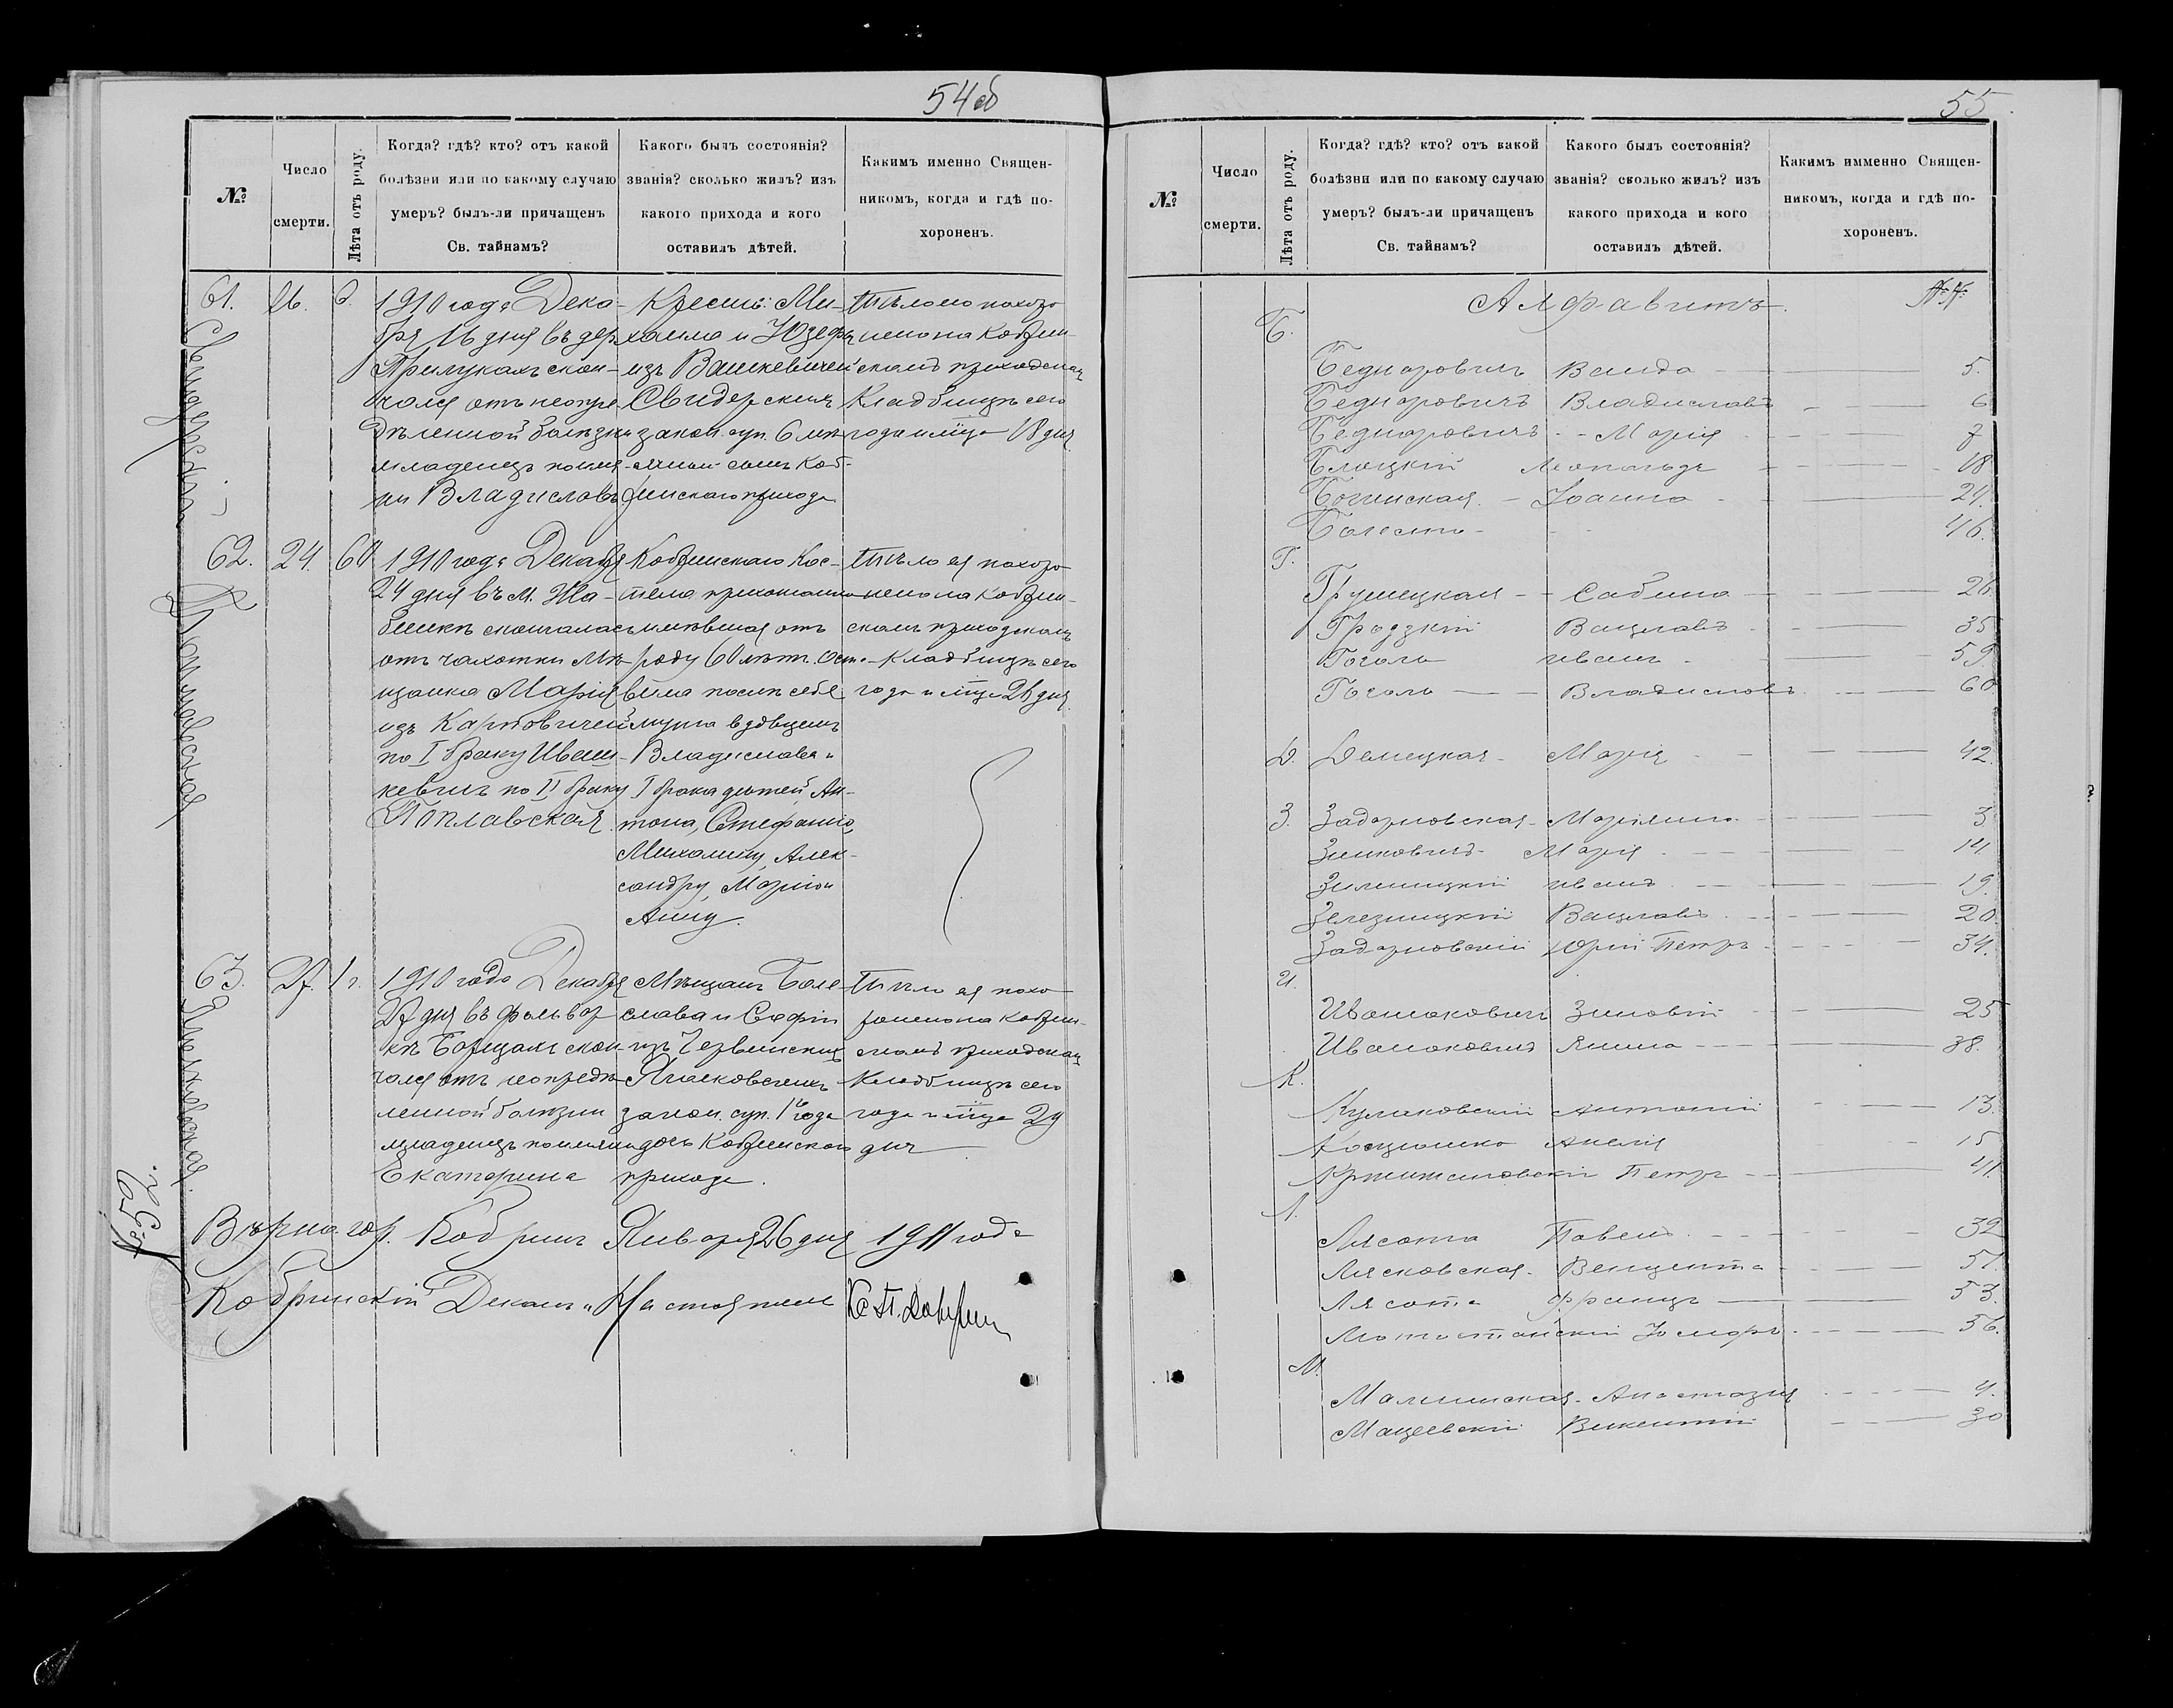 54об
№
Число смерти.
Лѣта отъ роду.
Когда? гдѣ? кто? отъ какой
болѣзни или по какому случаю
умеръ? былъ-ли причащенъ
Св. тайнамъ?
Какого былъ состоянія?
званія? сколько жилъ? изъ
какого прихода и кого
оставилъ дѣтей.
Какимъ именно Священ-
никомъ, когда и гдѣ по-
хороненъ.
61.
Свидерскій
16.
6.
1910 года Дека-
бря 16 дня въ дер
Прилукахъ скон-
чался отъ неопре
дѣленной болѣзни
младенецъ
Владиславъ
Крест: Ми-
хаила и Юзефы
изъ Вашкевичей
Свидерскихъ
закон. суп. 6
сынъ Коб-
ринскаго прихода
Тѣло его похоро
нено на Кобрин-
скомъ приходскомъ
Кладбищѣ сего
года и мца 18 дня
62.
Поплавская
24.
60
1910 года Декабря
24 дня въ м. Жа-
бинкѣ скончалась
отъ чахотки мѣ-
щанка Марія
изъ Карповичей
по I браку Иваш-
кевичъ по II браку
Поплавская.
Кобринскаго Кос-
тела прихожанка
имѣвшая отъ
роду 60 лѣтъ. Оста-
вила послѣ себя
мужа вдовцемъ
Владислава и
I брака дѣтей Ан-
тона, Стефанію,
Михалину, Алек-
сандру, Марію и
Анну.
Тѣло ея похоро
нено на Кобрин-
скомъ приходскомъ
Кладбищѣ сего
года и мца 26 дня.
63.
Яцковская
27.
1 г.
1910 года Декабря
27 дня въ фольвар
кѣ скон-
чался отъ неопредѣ-
ленной болѣзни
младенецъ
Екатерина
Мѣщанъ Боле-
слава и Софіи
изъ Червинскихъ
закон. суп. 1 года
дочь Кобринскаго
прихода.
Тѣло ея похо
ронено на Кобрин-
скомъ приходскомъ
Кладбищѣ сего
года и мца 29
дня
Вѣрно. гор. Кобринъ Января 26 дня 1911 года
Кобринскій Деканъ и Настоятель
55
№
Число смерти.
Лѣта отъ роду.
Когда? гдѣ? кто? отъ какой
болѣзни или по какому случаю
умеръ? былъ-ли причащенъ
Св. тайнамъ?
Какого былъ состоянія?
званія? сколько жилъ? изъ
какого прихода и кого
оставилъ дѣтей.
Какимъ имменно Священ-
никомъ, когда и гдѣ по-
хороненъ.
Алфавитъ. №№
Б.
Беднаровичъ Ванда 5.
Беднаровичъ Владиславъ 6
Беднаровичъ Марія 7
Блоцкій Леопольдъ 18
Богинская Іоанна 24.
46.
Г.
Грушецкая Сабина 26
Гродзкій Вацлавъ 35
Гоголь Иванъ 59.
Гоголь Владиславъ 60
Д. Демецкая Марія 42.
З. Задарновская Маріянна 3
Зинковичъ Марія 14.
Зелинницкій Иванъ 19.
Железницкій Вацлавъ 20.
Задарновскій Юрій Петръ 34.
И.
Иванаковичъ Зиновій 25
Иванаковичъ Янина 38.
К.
Кулаковскій Антоній 13.
Косцюшко Анеля 15
Кржижановскій Петръ 41.
Л.
Лясота Павелъ 32
Лясковская Венцента 51.
Лясота Францъ 53.
56.
М.
Малишская Анастазія 4.
Мацеевскій Викентій 30